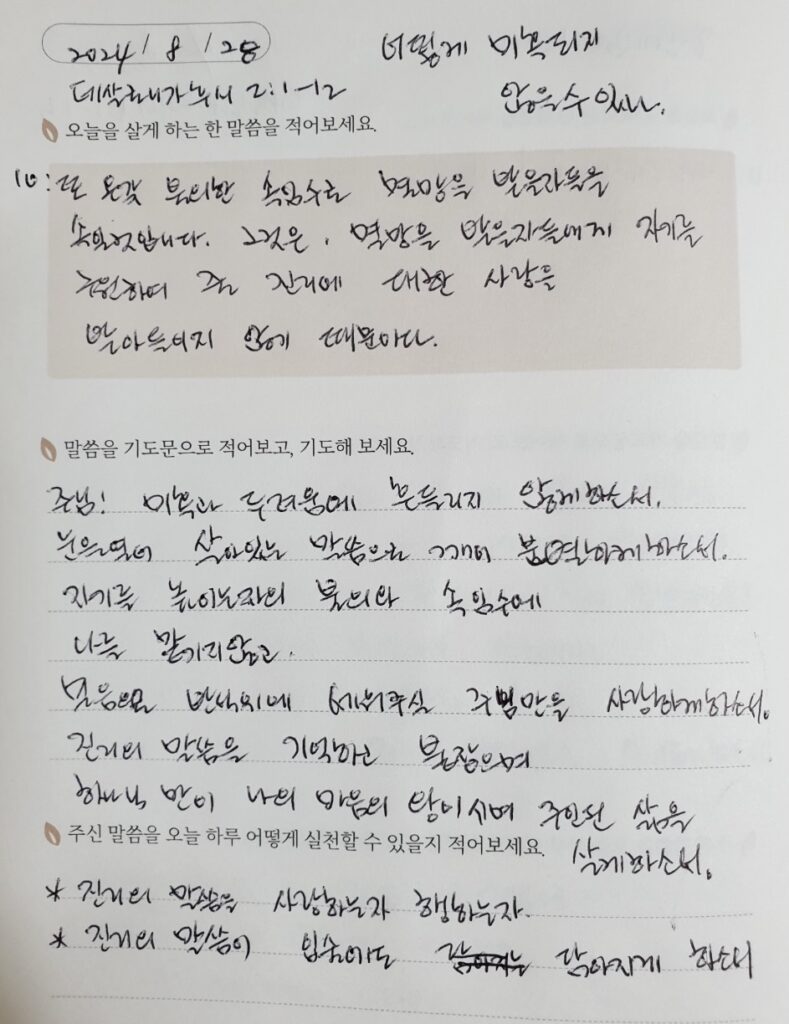 2024 / 8 / 28
어떻게 미혹되지
데살로니가후서 2:1-12
않을 수 있나.
오늘을 살게 하는 한 말씀을 적어보세요.
10: 또 온갖 불의한 속임수로 멸망을 받을자들을
속일것입니다. 그것은, 멸망을 받을자들에게 자기를
구원하여 줄 진리에 대한 사랑을
받아들이지 않기 때문이다.
말씀을 기도문으로 적어보고, 기도해 보세요.
주님! 미혹과 두려움에 흔들리지 않게하소서.
눈을열어 살아있는 말씀으로 깨어 분별하게하소서.
자기를 높이는자의 불의와 속임수에
나를 맡기지않고.
믿음으로 반석위에 세워주실 주님만을 사랑하게하소서.
진리의 말씀을 기억하고 붙잡으며
하나님 만이 나의 마음의 왕이시며 주인된 삶을
살게하소서.
주신 말씀을 오늘 하루 어떻게 실천할 수 있을지 적어보세요.
* 진리의 말씀을 사랑하는자 행하는자.
* 진리의 말씀이 입술에도 닮아지게 하소서